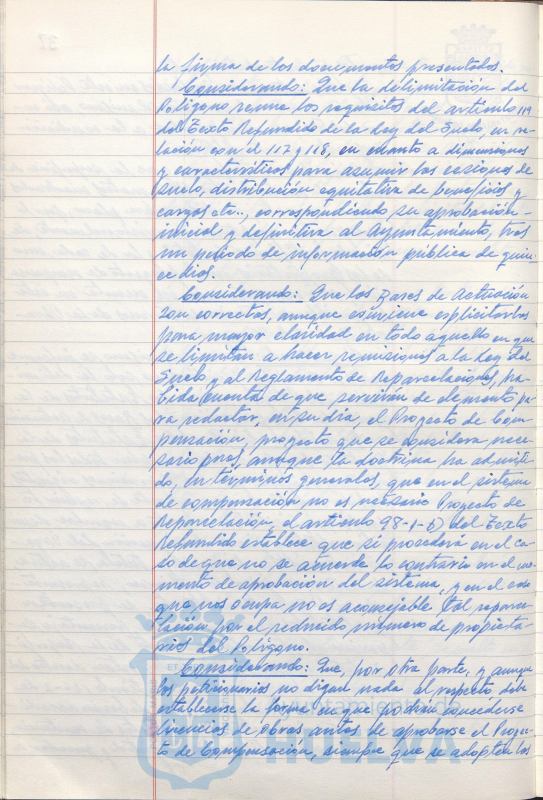 la firma de los documentos presentados.
Considerando: Que la delimitación del
Polígono reune los requisitos del artículo 119
del Texto Refundido de la Ley del Suelo, en re-
lación con el 117 y 118, en cuanto a dimensiones
y características para asumir las cesiones de
suelo, distribución equitativa de beneficios y
cargas etc.., correspondiendo su aprobación
inicial y definitiva al Ayuntamiento, tras
un período de información pública de quin-
ce días.
Considerando: Que las Bases de Actuación
son correctas, aunque conviene explicitarlas
para mayor claridad en todo aquello en que
se limitan a hacer remisiones a la Ley del
Suelo y al Reglamento de Reparcelaciones, ha-
bida cuenta de que servirán de elemento pa-
ra redactar, en su día, el Proyecto de Com-
pensación, proyecto que se considera nece-
sario pues, aunque la doctrina ha admiti-
do, en términos generales, que en el sistema
de compensación no es necesario Proyecto de
Reparcelación, el artículo 98-1-b) del Texto
Refundido establece que si procederá en el ca-
so de que no se acuerde lo contrario en el mo-
mento de aprobación del sistema, y en el caso
que nos ocupa no es aconsejable tal reparce-
lación por el reducido número de propieta-
rios del Polígono.
Considerando: Que, por otra parte, y aunque
los peticionarios no digan nada al respecto debe
establecerse la forma en que podrán concederse
licencias de obras antes de aprobarse el Proyec-
to de Compensación, siempre que se adopten las
Ayuntamiento de
HUELVA
37